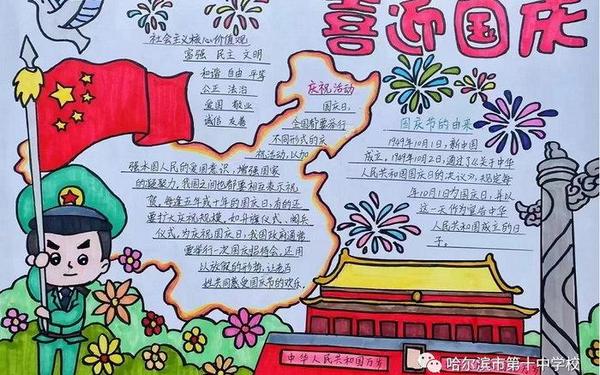 喜迎国庆
社会主义核心价值观
富强 民主 文明
和谐 自由 平等
公正 法治
爱国 敬业
诚信 友善
庆祝活动
国庆日,
全国都要举行
不同形式的庆
祝活动,以加
强本国人民的爱国意识,增强国家
的凝聚力。我国之间也都要相互表示祝
贺,每逢五年或十年的国庆日,有的还
要扩大庆祝规模,如升旗仪式、阅兵
仪式,为庆祝国庆日,我国政府通常
要举行一次国庆招待会,还用
以放假的形势,让老百
姓共同感受国庆节的欢乐。
国庆节的由来
1949年10月1日,新中国
成立。1949年10月2日,通过了《关于中华
人民共和国国庆日的决议》,规定每
年10月1日为国庆日,并以
这一天作为宣告中华
人民共和国成立的日
子。
中华人民共和国万岁
哈尔滨市第十中学校